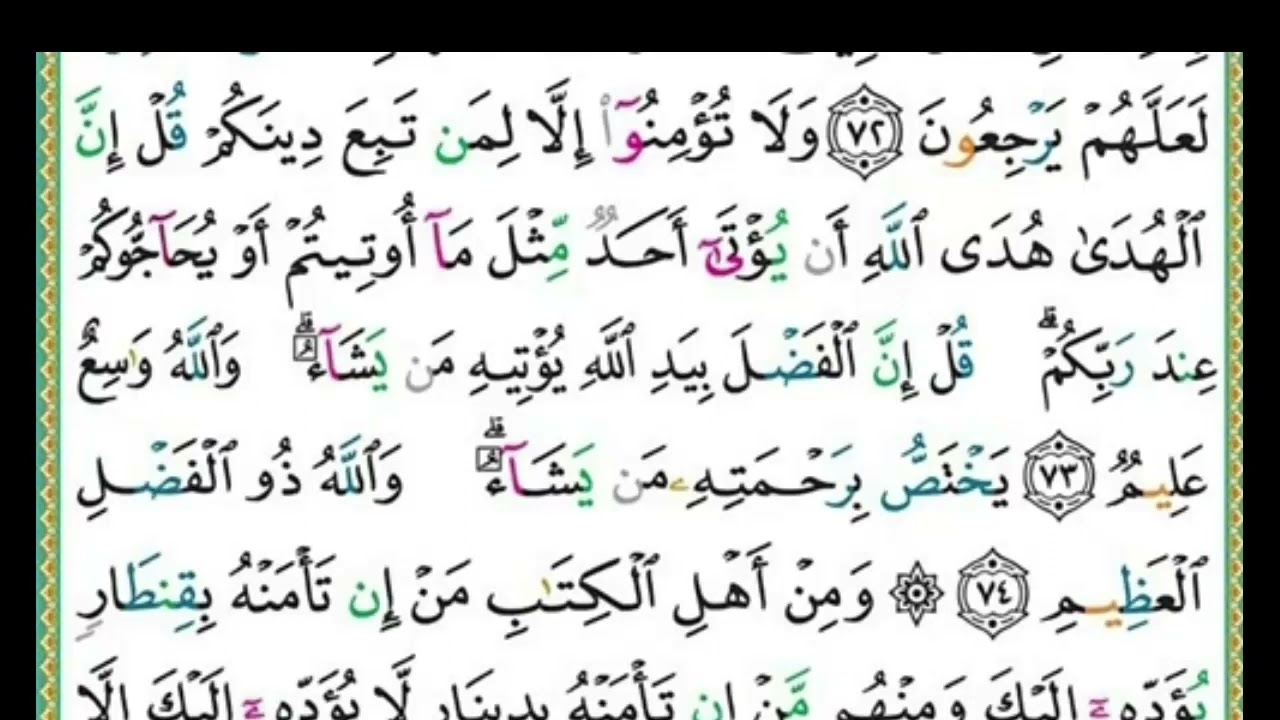 لَعَلَّهُمْ يَرْجِعُونَ ٧٢ وَلَا تُؤْمِنُوٓا۟ إِلَّا لِمَن تَبِعَ دِينَكُمْ قُلْ إِنَّ
ٱلْهُدَىٰ هُدَى ٱللَّهِ أَن يُؤْتَىٰٓ أَحَدٌ مِّثْلَ مَآ أُوتِيتُمْ أَوْ يُحَآجُّوكُمْ
عِندَ رَبِّكُمْ ۗ قُلْ إِنَّ ٱلْفَضْلَ بِيَدِ ٱللَّهِ يُؤْتِيهِ مَن يَشَآءُ ۗ وَٱللَّهُ وَٰسِعٌ
عَلِيمٌ ٧٣ يَخْتَصُّ بِرَحْمَتِهِۦ مَن يَشَآءُ ۗ وَٱللَّهُ ذُو ٱلْفَضْلِ
ٱلْعَظِيمِ ٧٤ ۞ وَمِنْ أَهْلِ ٱلْكِتَٰبِ مَنْ إِن تَأْمَنْهُ بِقِنطَارٍ
يُؤَدِّهِۦٓ إِلَيْكَ وَمِنْهُم مَّنْ إِن تَأْمَنْهُ بِدِينَارٍ لَّا يُؤَدِّهِۦٓ إِلَيْكَ إِلَّا